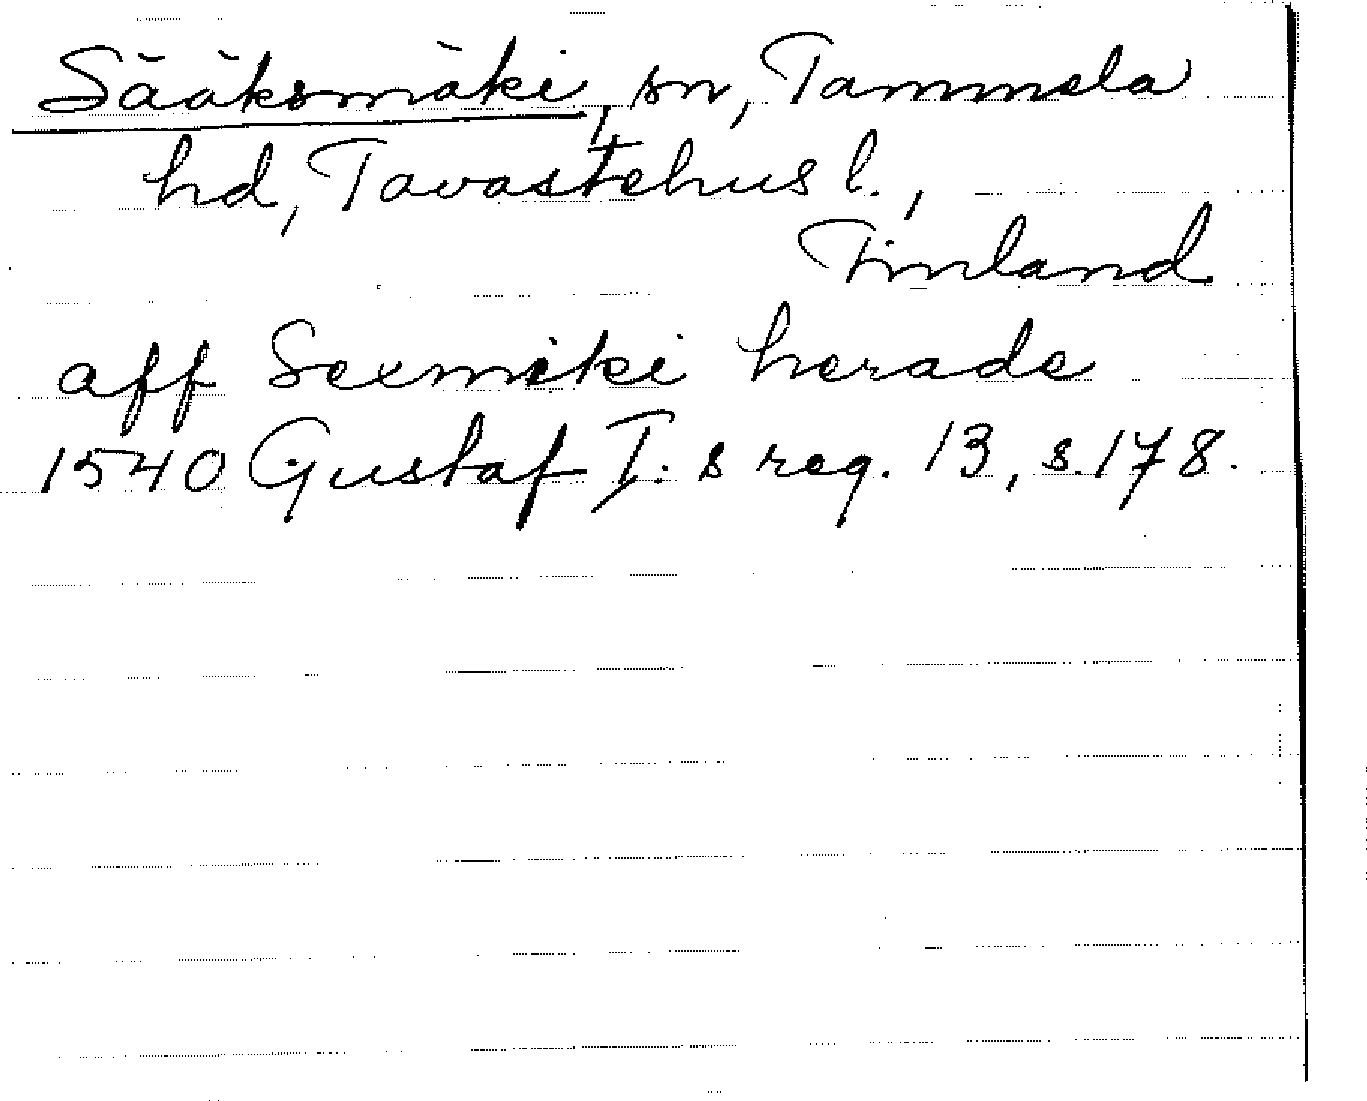 Sääksmäki, sn, Tammela
hd, Tavastehus l.,
Finland
aff Sexmeki herade
1540 Gustaf I:s reg. 13, s. 178.